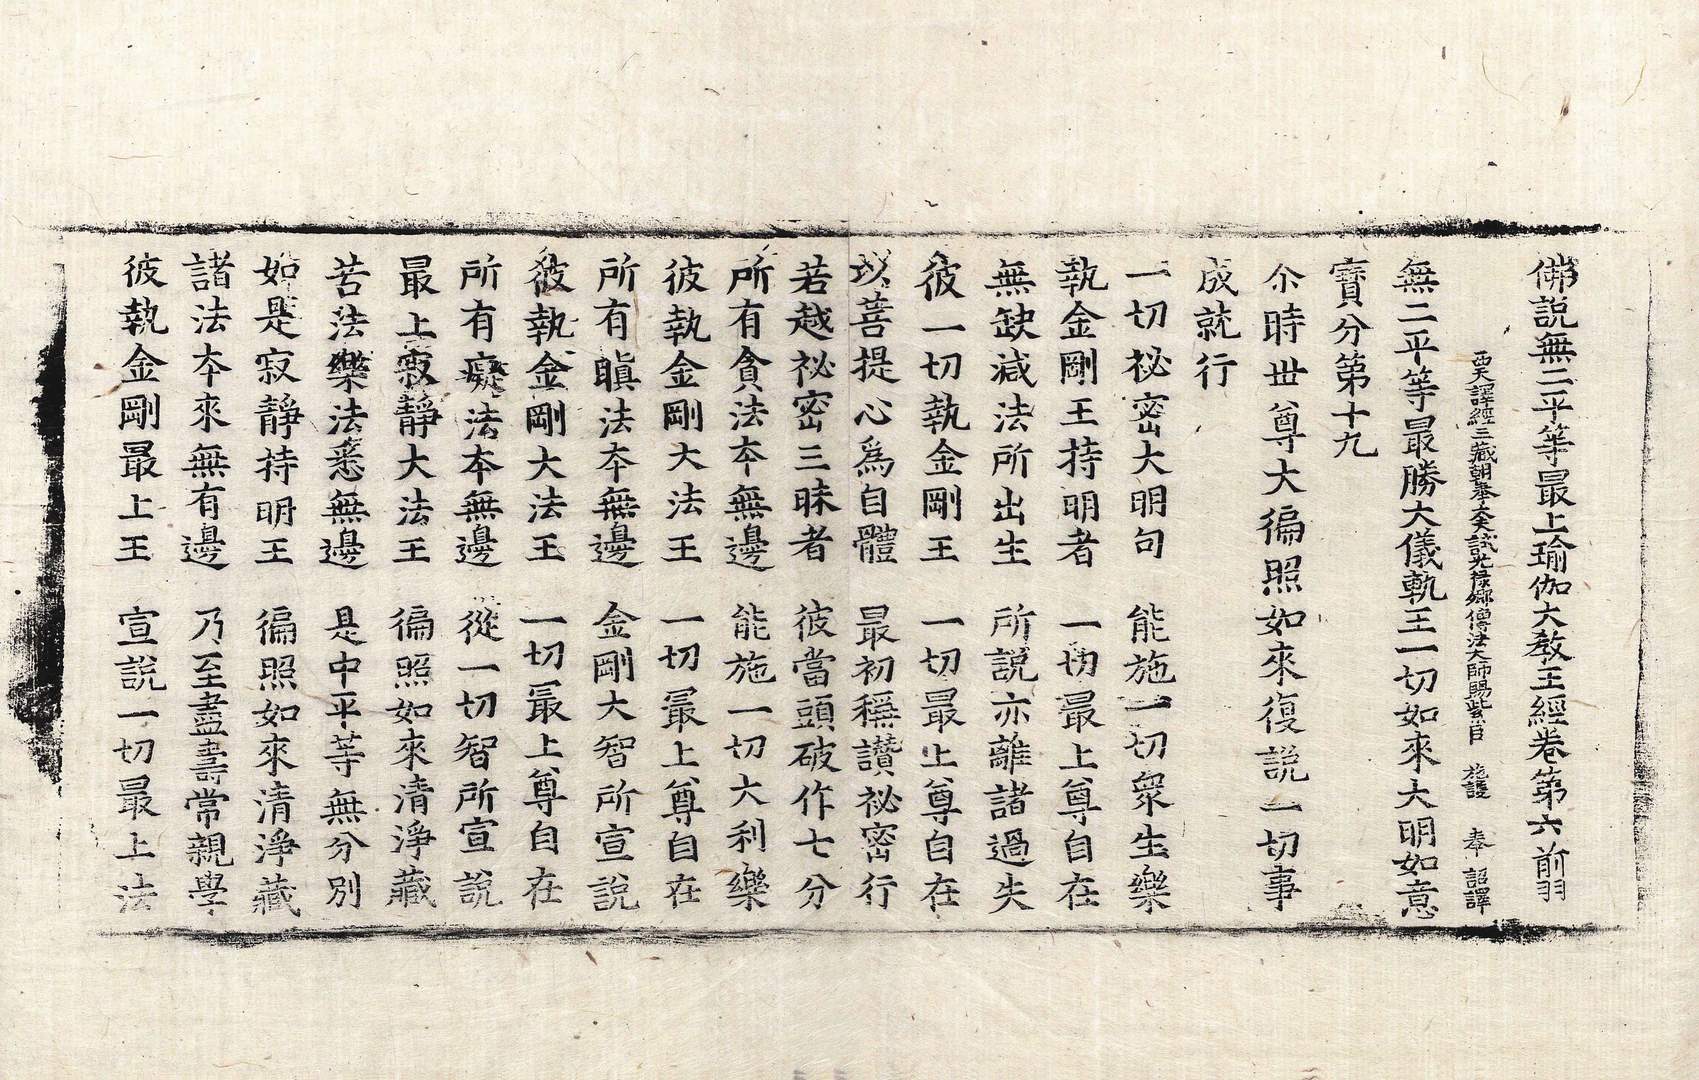 佛說無二平等最上瑜伽大敎王經卷第六 前羽
西天譯經三藏朝奉大夫試光祿卿傳法大師賜紫臣 施護 奉 詔譯
無二平等最勝大儀軌王一切如來大明如意
寶分第十九
尒時世尊大徧照如來復說一切事
成就行
一切祕密大明句 能施一切衆生樂
執金剛王持明者 一切最上尊自在
無缺減法所出生 所說亦離諸過失
彼一切執金剛王 一切最上尊自在
以菩提心為自體 最初稱讚祕密行
若越祕密三昧者 彼當頭破作七分
所有貪法本無邊 能施一切大利樂
彼執金剛大法王 一切最上尊自在
所有瞋法本無邊 金剛大智所宣說
彼執金剛大法王 一切最上尊自在
所有癡法本無邊 從一切智所宣說
最上寂靜大法王 徧照如來清淨藏
苦法樂法悉無邊 是中平等無分別
如是寂靜持明王 徧照如來清淨藏
諸法本來無有邊 乃至盡壽常親學
彼執金剛最上王 宣說一切最上法